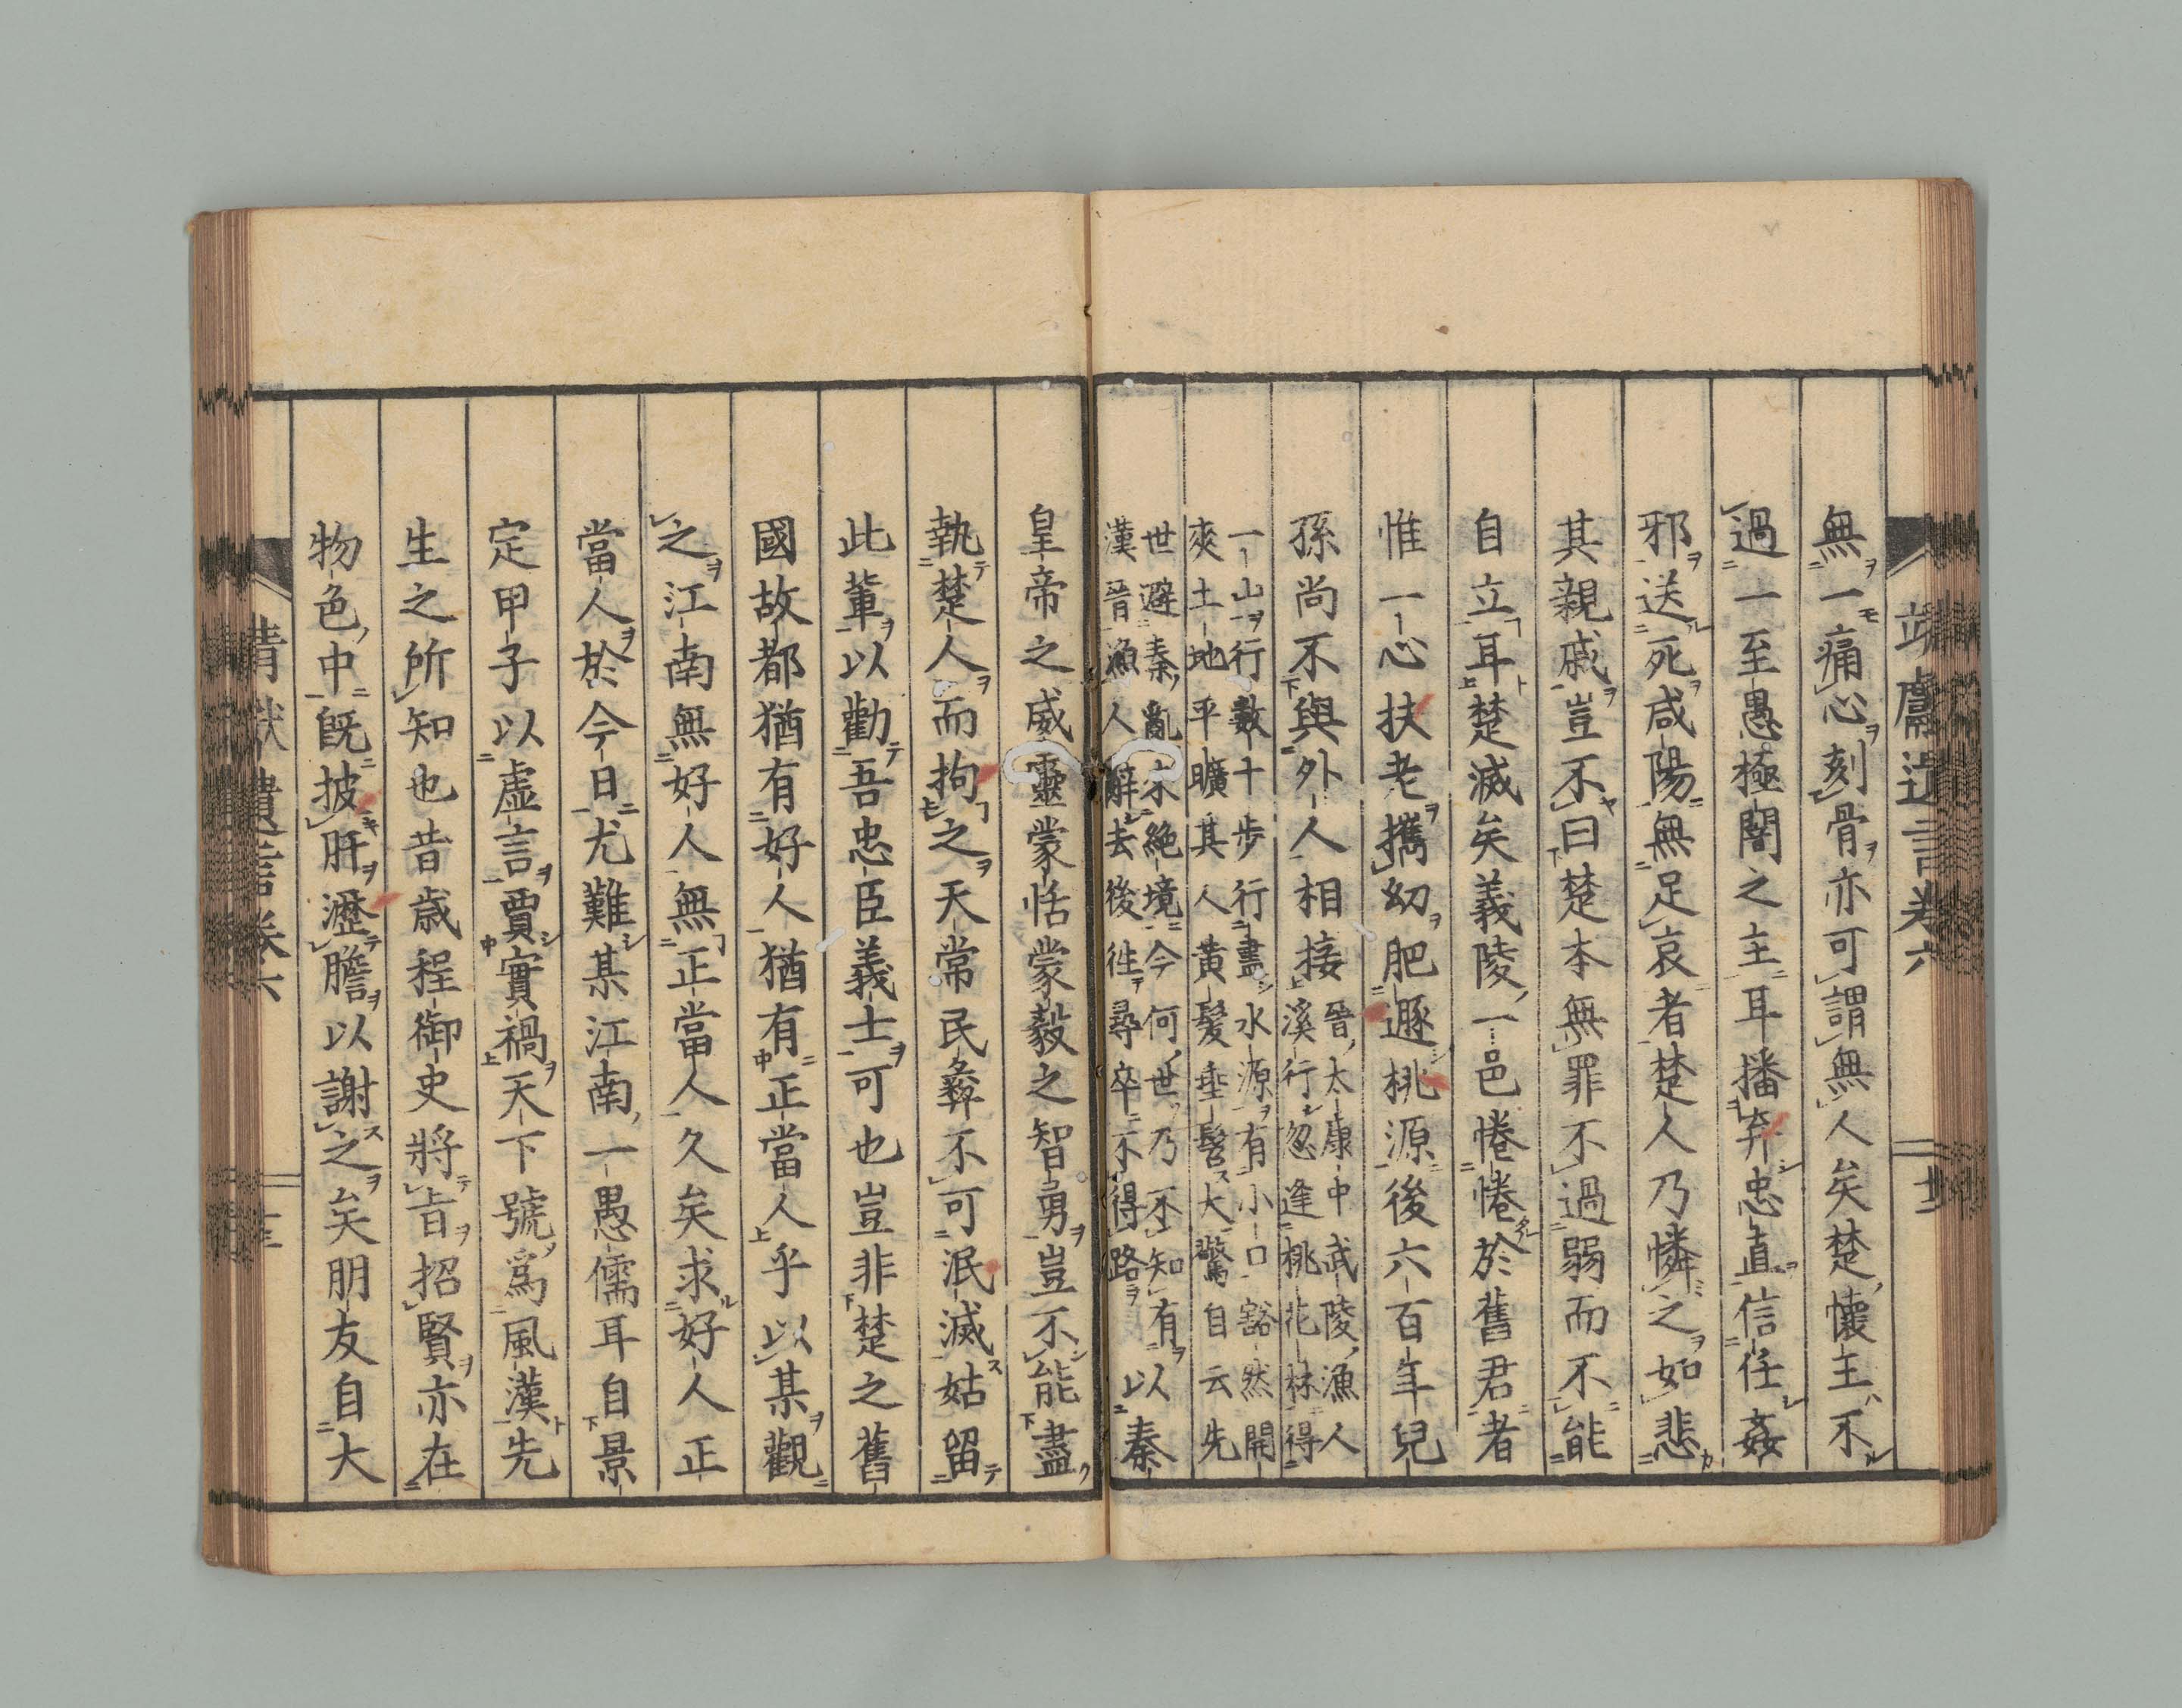 靖獻遺言卷六
無一痛心刻骨亦可謂無人矣楚懷主不
過一至愚極闇之主耳播弃忠直信任姦
邪送死咸陽無足哀者楚人乃憐之如悲
其親戚豈不曰楚本無罪不過弱而不能
自立耳楚滅矣義陵一邑惓惓於舊君者
惟一心扶老攜幼肥遯桃源後六百年兒
孫尚不與外人相接
晉太康中武陵漁人
溪行忽逢桃花林得
一山行數十步行盡水源有小口豁然開
爽土地平曠其人黃髮垂髫大驚自云先
世避秦亂來絶境今何世乃不知有
漢晉漁人辭去後徃尋卒不得路
以秦
皇帝之威靈蒙恬蒙毅之智勇豈不能盡
執楚人而拘之天常民彝不可泯滅姑留
此輩以勸吾忠臣義士可也豈非楚之舊
國故都猶有好人猶有正當人乎以某觀
之江南無好人無正當人久矣求好人正
當人於今日尤難某江南一愚儒耳自景
定甲子以虚言賈實禍天下號爲風漢先
生之所知也昔歳程御史將旨招賢亦在
物色中既披肝瀝膽以謝之矣朋友自大
靖獻遺言卷六